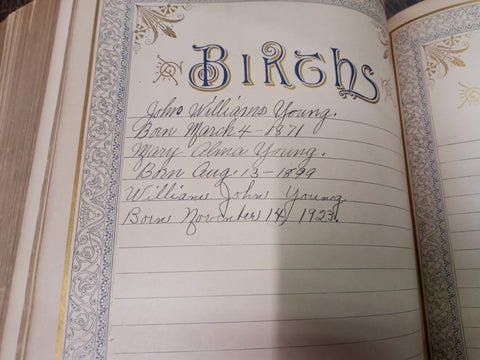 Births
John Williams Young.
Born March 4-1871
Mary Alma Young.
Born Aug 13-1899
William John Young
Born November 14, 1923.